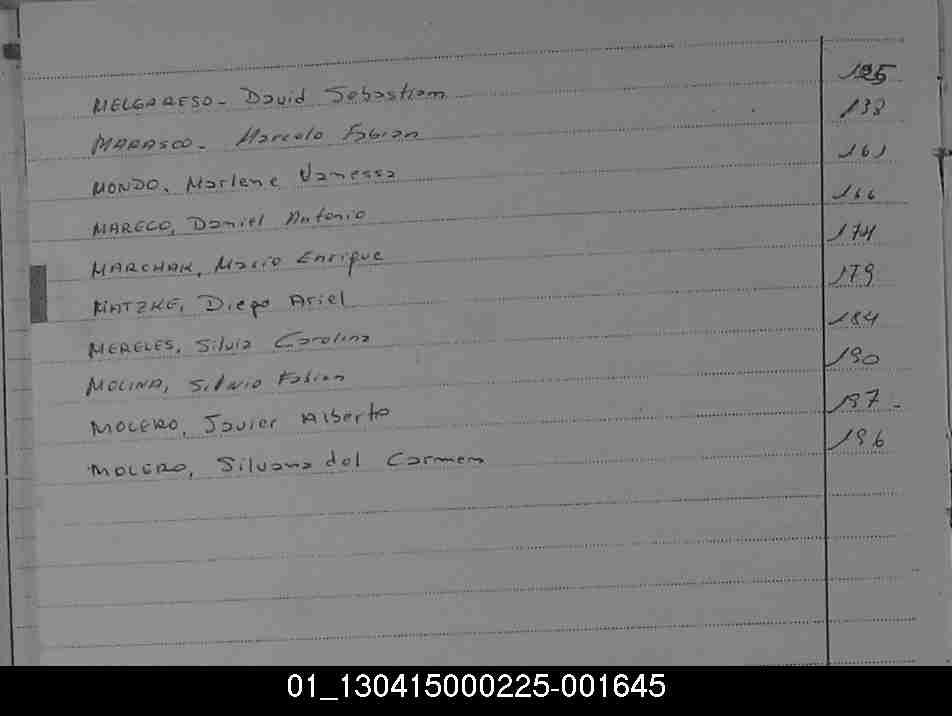 MELGARESO - David Sebastian 125
MARASCO - Marcelo Fabian 138
MONDO, Marlene Vanessa 161
MARECO, Daniel Antonio 166
MARCHAK, Mario Enrique 174
MATZKE, Diego Ariel 179
MERELES, Silvia Carolina 184
MOLINA, Silvio Fabian 190
MOLERO, Javier Alberto 197 -
MOLERO, Silvana del Carmen 196
01_130415000225-001645